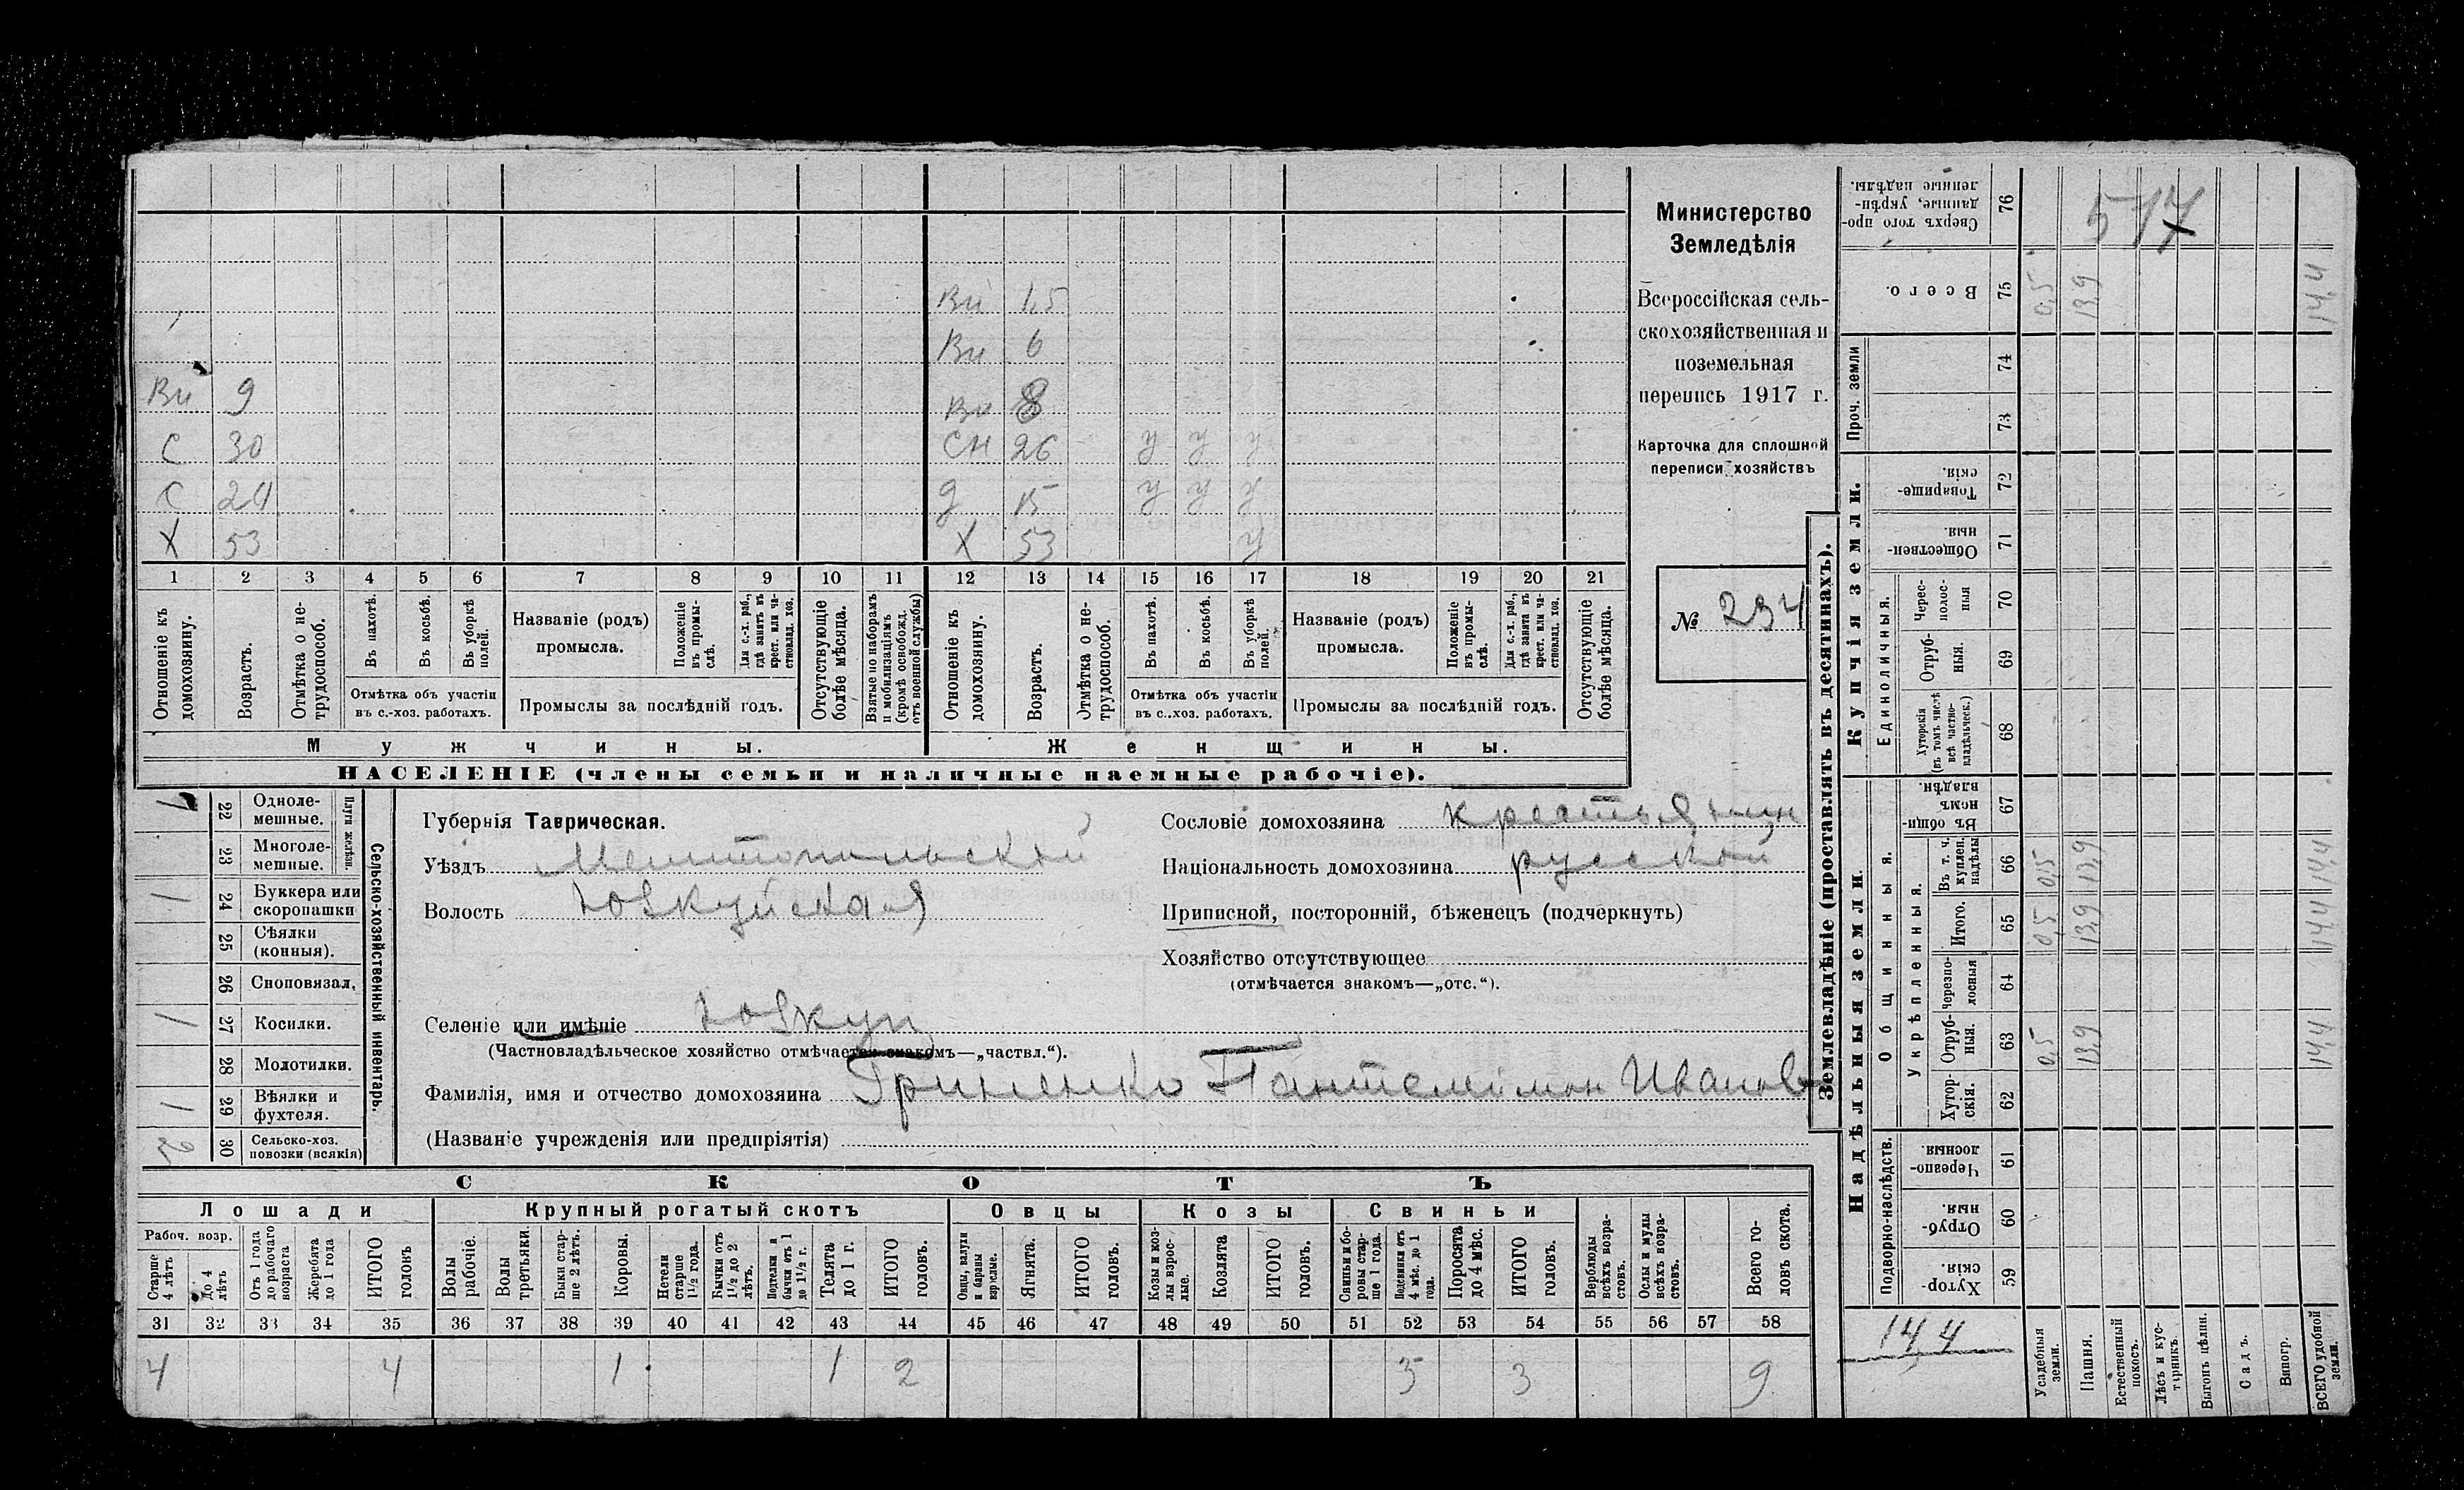 Ви 1,5
Ви 6
Ви 9 Ви 8
С 30 СН 26 у у у
С 24 д 15 у у у
Х 53 Х 53 у
1 2 3 4 5 6 7 8 9 10 11 12 13 14 15 16 17 18 19 20 21
Отношеніе къ домохозяину.
Возрастъ.
Отмѣтка о не-трудоспособ.
Въ пахотѣ.
Въ косьбѣ.
Въ уборкѣ полей.
Отмѣтка объ участіи
въ с.-хоз. работахъ.
Названіе (родъ)
промысла.
Положеніе въ промы-слѣ.
Для с.-х. раб., гдѣ занятъ въ крест. или ча-стновлад. хоз.
Промыслы за послѣдній годъ.
Отсутствующіе болѣе мѣсяца.
Взятые по наборамъ и мобилизаціямъ (кромѣ освобожд. отъ военной службы)
Отношеніе къ домохозяину.
Возрастъ.
Отмѣтка о не-трудоспособ.
Въ пахотѣ.
Въ косьбѣ.
Въ уборкѣ полей.
Отмѣтка объ участіи
въ с.-хоз. работахъ.
Названіе (родъ)
промысла.
Положеніе въ промы-слѣ.
Для с.-х. раб., гдѣ занята въ крест. или ча-стновлад. хоз.
Промыслы за послѣдній годъ.
Отсутствующіе болѣе мѣсяца.
Мужчины. Женщины.
НАСЕЛЕНІЕ (члены семьи и наличные наемные рабочіе).
Министерство
Земледѣлія
Всероссійская сель-
скохозяйственная и
поземельная
перепись 1917 г.
Карточка для сплошной
переписи хозяйствъ
№ 234
Сельско-хозяйственный инвентарь.
Плуги желѣзн.
22 Одноле-мешные.
23 Многоле-мешные.
1 24 Буккера или скоропашки
25 Сѣялки (конныя).
26 Сноповязал.
1 27 Косилки.
28 Молотилки.
1 29 Вѣялки и фухтеля.
2 30 Сельско-хоз. повозки (всякія)
Губернія Таврическая.
Уѣздъ Мелитопольской
Волость Юзкуйская
Селеніе или имѣніе Юзкуи
(Частновладѣльческое хозяйство отмѣчается знакомъ—„частвл.“).
Фамилія, имя и отчество домохозяина Гриненко Пантелимон Иванов
(Названіе учрежденія или предпріятія)
Сословіе домохозяина крестьянин
Національность домохозяина русской
Приписной, посторонній, бѣженецъ (подчеркнуть)
Хозяйство отсутствующее
(отмѣчается знакомъ—„отс.“).
СКОТЪ
Лошади Крупный рогатый скотъ Овцы Козы Свиньи
Рабоч. возр.
Старше 4 лѣтъ
До 4 лѣтъ
Отъ 1 года до рабочаго возраста
Жеребята до 1 года
ИТОГО головъ
Волы рабочіе.
Волы третьяки.
Быки стар-ше 2 лѣтъ.
Коровы.
Нетели старше 1½ года.
Бычки отъ 1½ до 2 лѣтъ.
Подтелки и бычки отъ 1 до 1½ г.
Телята до 1 г.
ИТОГО головъ.
Овцы, валухи и бараны взрослые.
Ягнята.
ИТОГО головъ.
Козы и коз-лы взрос-лые.
Козлята
ИТОГО головъ.
Свиньи и бо-ровы стар-ше 1 года.
Подсвинки отъ 4 мѣс. до 1 года.
Поросята до 4 мѣс.
ИТОГО головъ.
Верблюды всѣхъ возра-стовъ.
Ослы и мулы всѣхъ возра-стовъ.
Всего го-ловъ скота.
31 32 33 34 35 36 37 38 39 40 41 42 43 44 45 46 47 48 49 50 51 52 53 54 55 56 57 58
4 4 1 1 2 3 3 9
Землевладѣніе (проставлять въ десятинахъ).
Сверхъ того про-данные, укрѣп-ленные надѣлы. 76
517
Всего. 75 0,5 13,9 14,4
Проч. земли
74
73
Купчія земли.
Товарище-скія. 72
Обществен-ныя 71
Единоличныя.
Черес-полос-ныя 70
Отруб-ныя. 69
Хуторскія (въ томъ числѣ всѣ частно-владѣльческ.) 68
Надѣльныя земли.
Общинныя.
Въ общин-номъ владѣн. 67
Укрѣпленныя.
Въ т. ч. куплен. надѣлы 66 0,5 13,9 14,4
Итого. 65 0,5 13,9 14,4
Черезпо-лосныя 64
Отруб-ныя. 63 0,5 13,9 14,4
Хутор-скія. 62
Подворно-наслѣдств.
Черезпо-лосныя 61
Отруб-ныя. 60
Хутор-скія. 59
14,4
Усадебныя земли.
Пашня.
Естественный покосъ.
Лѣсъ и кус-тарникъ.
Выгонъ цѣлин.
Садъ.
Виногр.
ВСЕГО удобной земли.